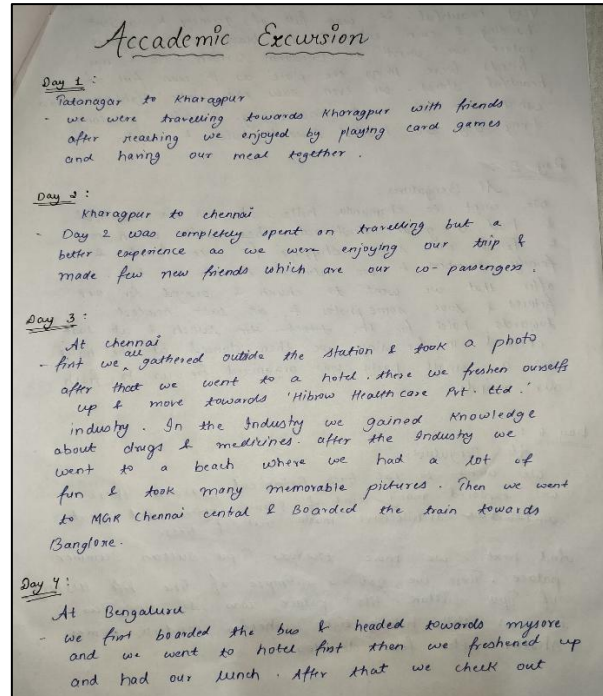 Accademic Excursion
Day 1 :
Tatanagar to Kharagpur
- we were travelling towards Kharagpur with friends
after reaching we enjoyed by playing card games
and having our meal together.
Day 2 :
Kharagpur to chennai
- Day 2 was completely spent on travelling but a
better experience as we were enjoying our trip &
made few new friends which are our co-passengers.
Day 3 :
At chennai
- first we all gathered outside the station & took a photo
after that we went to a hotel. there we freshen ourselfs
up & move towards 'Hibrow Healthcare Pvt. Ltd.'
industry. In the Industry we gained knowledge
about drugs & medicines. after the Industry we
went to a beach where we had a lot of
fun & took many memorable pictures. Then we went
to MGR Chennai cental & Boarded the train towards
Banglore.
Day 4 :
At Bengaluru
- we first boarded the bus & headed towards mysore
and we went to hotel first then we freshened up
and had our lunch. After that we check out